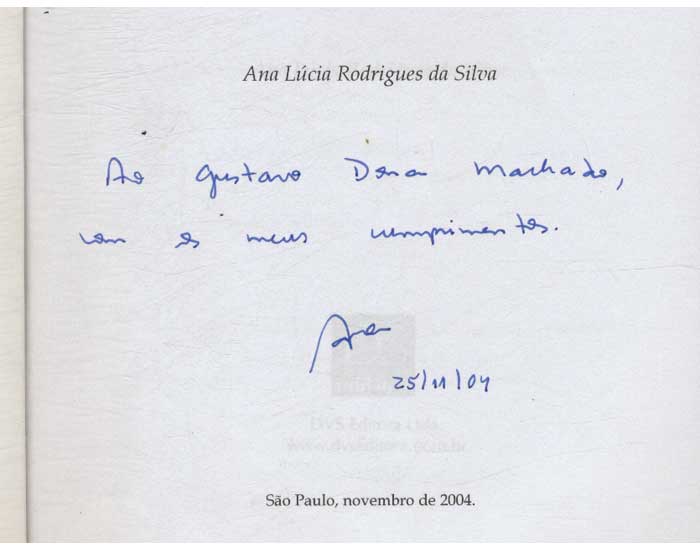 Ana Lúcia Rodrigues da Silva
Ao Gustavo Machado,
com os meus cumprimentos.
Ana
25/11/04
DVS Editora Ltda
www.dvseditora.com.br
São Paulo, novembro de 2004.